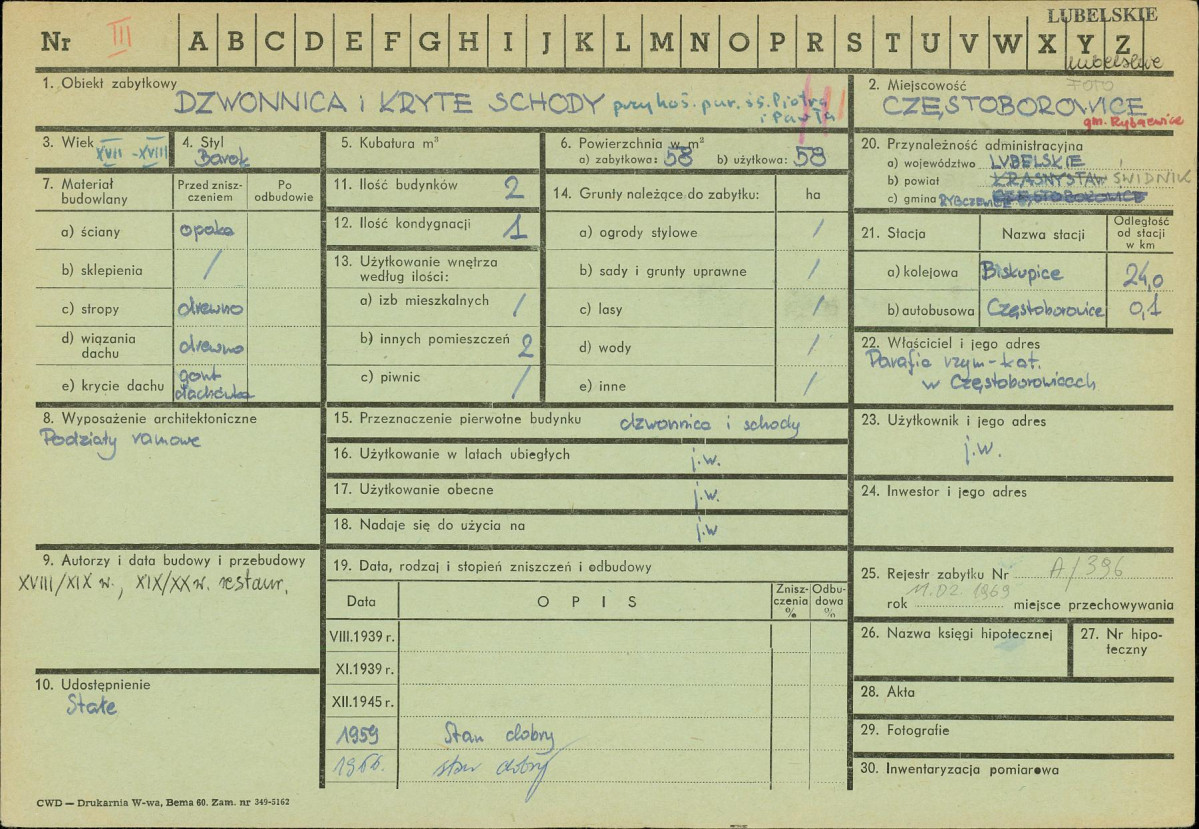 LUBELSKIE
Nr III A B C D E F G H I J K L M N O P R S T U V W X Y Z
lubelskie
1. Obiekt zabytkowy
DZWONNICA i KRYTE SCHODY przy koś. par. śś. Piotra
i Pawła
2. Miejscowość
FOTO
CZĘSTOBOROWICE
gm. Rybczewice
3. Wiek
XVII - XVIII
4. Styl
Barok
5. Kubatura m³
6. Powierzchnia w m²
a) zabytkowa: 58 b) użytkowa: 58
7. Materiał budowlany
Przed zniszczeniem
Po odbudowie
a) ściany opoka
b) sklepienia /
c) stropy drewno
d) wiązania dachu drewno
e) krycie dachu gont
dachówka
8. Wyposażenie architektoniczne
Podziały ramowe
9. Autorzy i data budowy i przebudowy
XVIII/XIX w., XIX/XX w. restaur.
10. Udostępnienie
Stałe
11. Ilość budynków 2
12. Ilość kondygnacji 1
13. Użytkowanie wnętrza
według ilości:
a) izb mieszkalnych /
b) innych pomieszczeń 2
c) piwnic /
14. Grunty należące do zabytku: ha
a) ogrody stylowe /
b) sady i grunty uprawne /
c) lasy /
d) wody /
e) inne /
15. Przeznaczenie pierwotne budynku dzwonnica i schody
16. Użytkowanie w latach ubiegłych j.w.
17. Użytkowanie obecne j.w.
18. Nadaje się do użycia na j.w
19. Data, rodzaj i stopień zniszczeń i odbudowy
Data
O P I S
Zniszczenia %
Odbudowa %
VIII.1939 r.
XI.1939 r.
XII.1945 r.
1959 Stan dobry
1966. stan dobry
20. Przynależność administracyjna
a) województwo LUBELSKIE
b) powiat KRASNYSTAW ŚWIDNIK
c) gmina RYBCZEWICE CZĘSTOBOROWICE
21. Stacja
Nazwa stacji
Odległość
od stacji
w km
a) kolejowa Biskupice 24,0
b) autobusowa Częstoborowice 0,1
22. Właściciel i jego adres
Parafia rzym-kat.
w Częstoborowicach
23. Użytkownik i jego adres
j.w.
24. Inwestor i jego adres
25. Rejestr zabytku Nr A/396
rok 11.02.1969 miejsce przechowywania
26. Nazwa księgi hipotecznej
27. Nr hipoteczny
28. Akta
29. Fotografie
30. Inwentaryzacja pomiarowa
CWD — Drukarnia W-wa, Bema 60. Zam. nr 349-5162